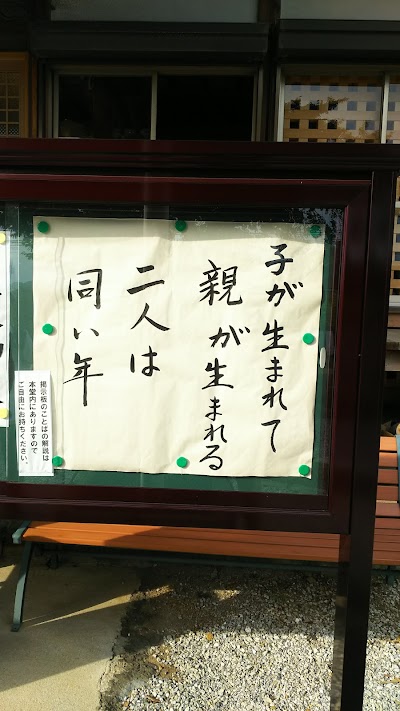 子が生まれて
親が生まれる
二人は
同い年
掲示板のことばの解説は
本堂内にありますので
ご自由にお持ちください。